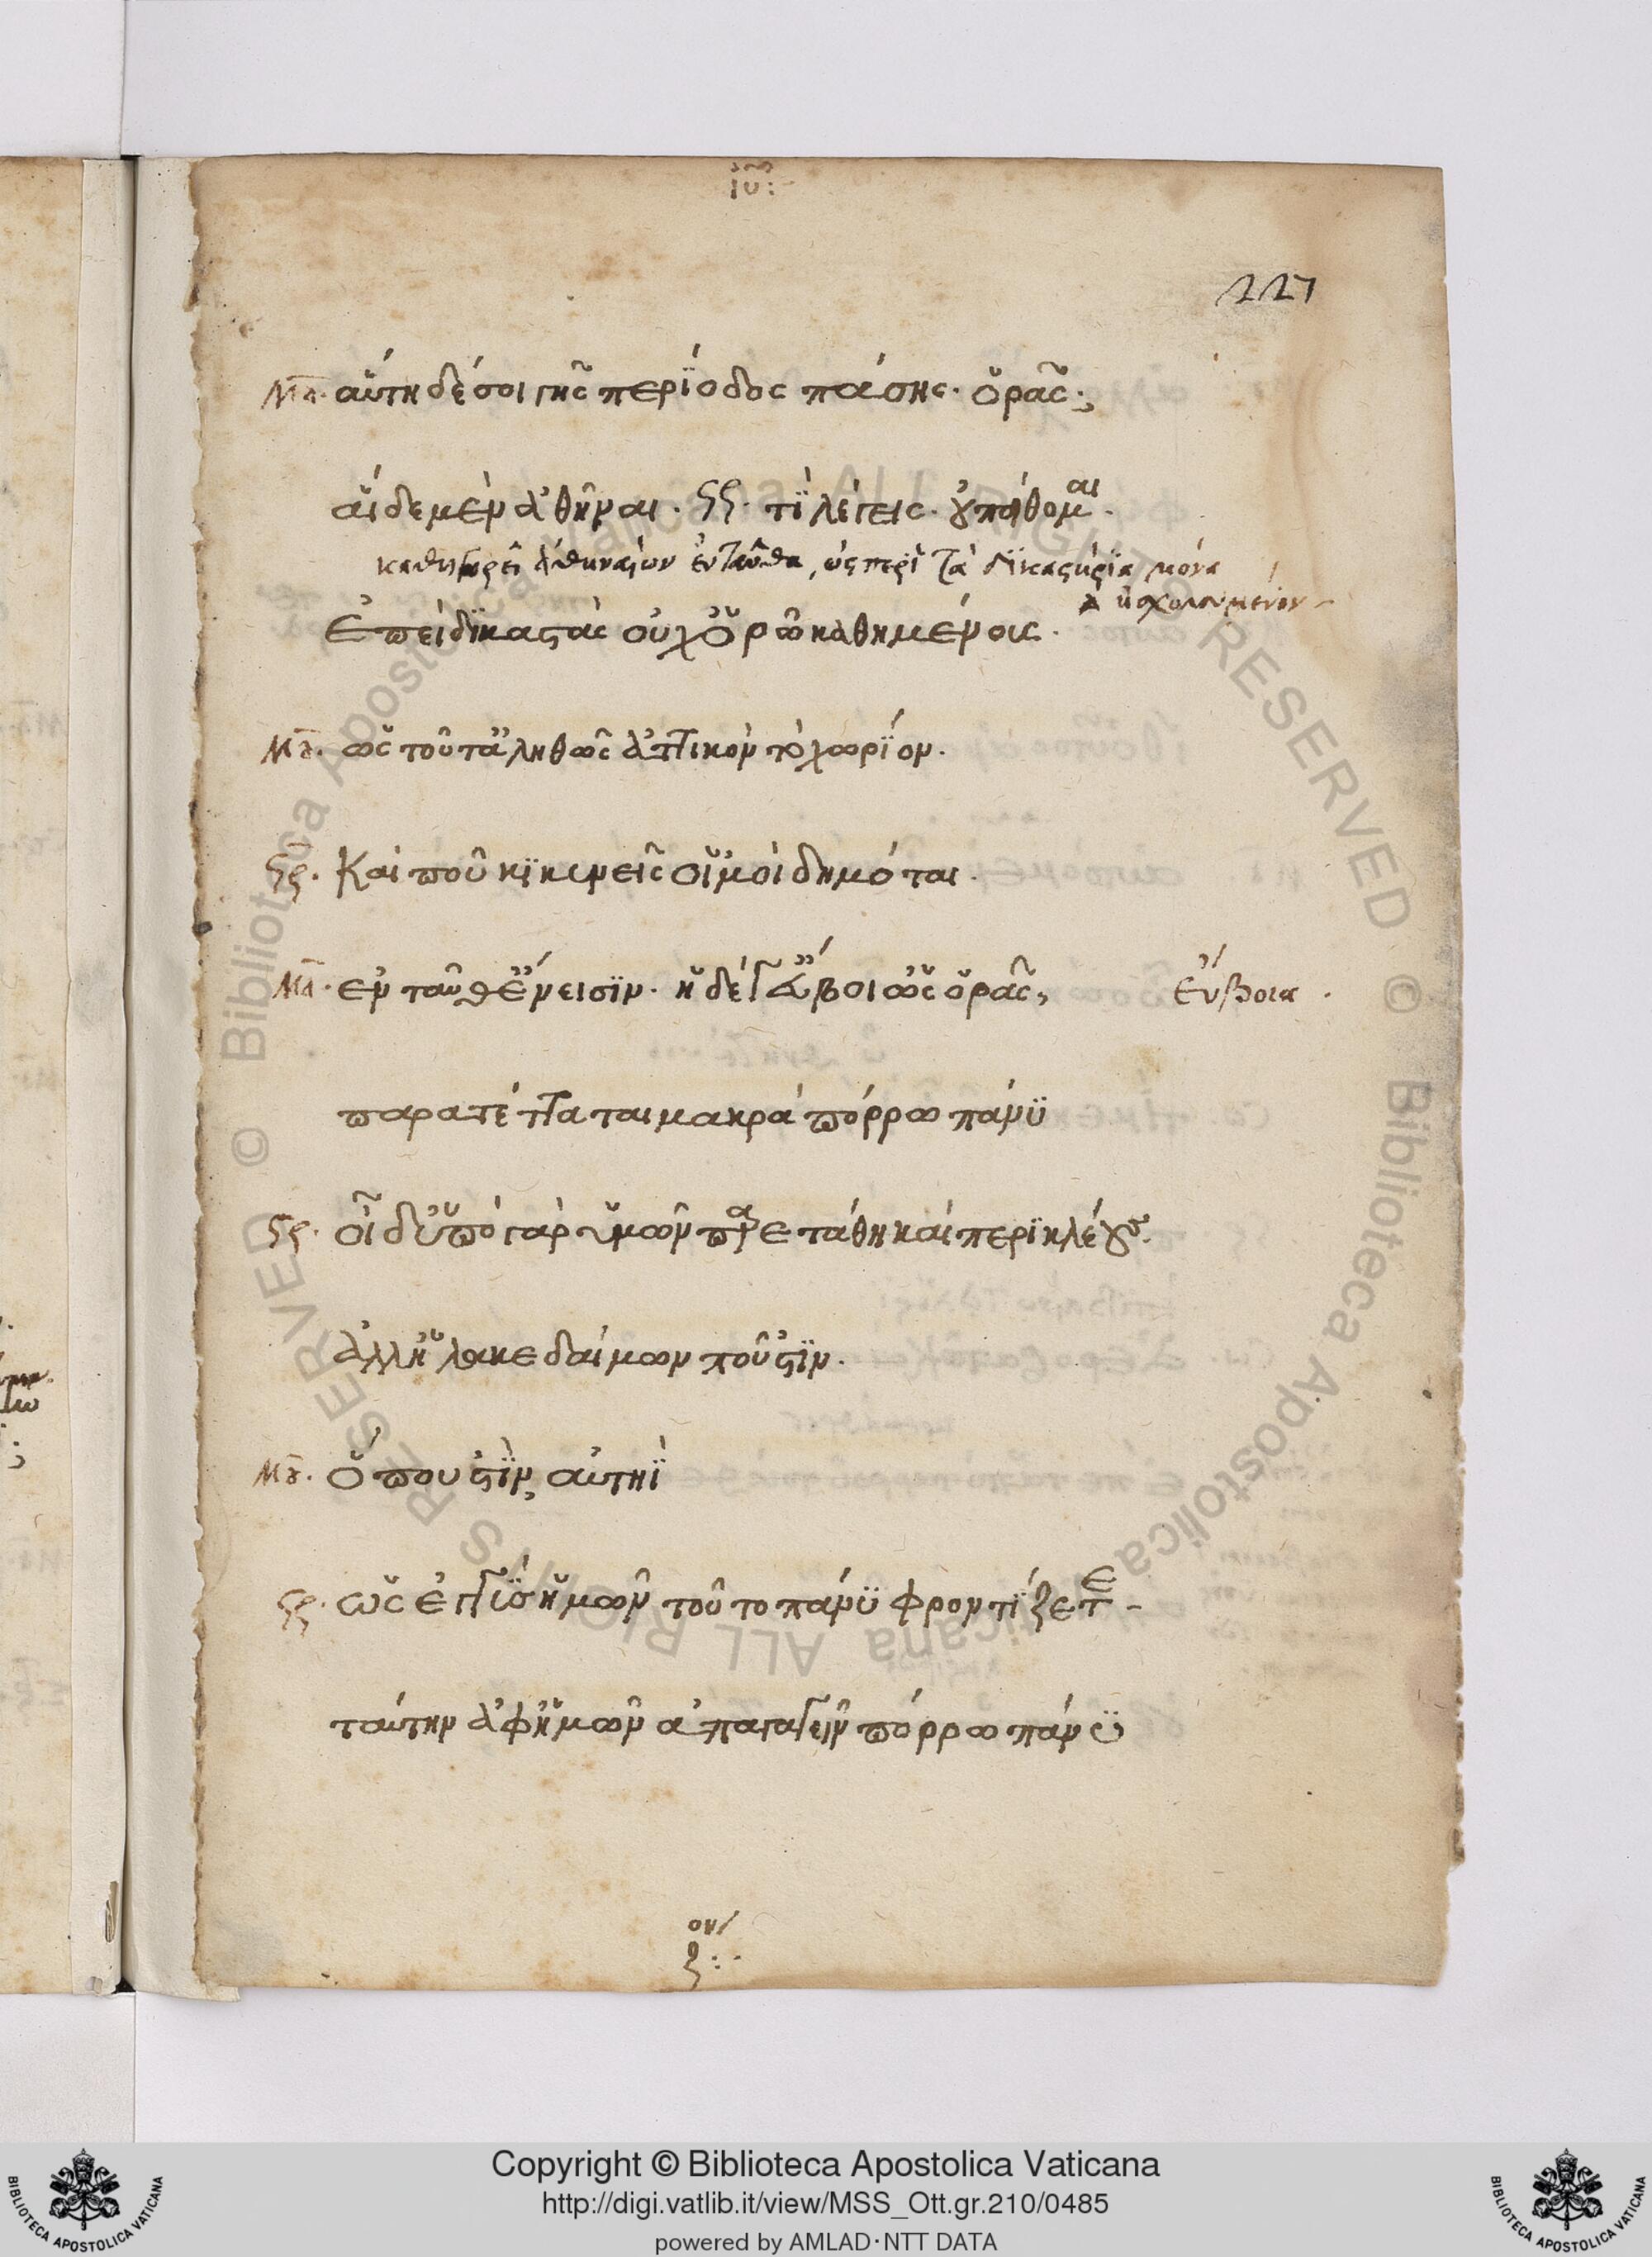 227
Μα. αὕτη δέ σοι γῆς περίοδος πάσης. ὁρᾷς;
αἵδε μὲν ἀθῆναι. Στρ. τί λέγεις. οὐ πείθομαι.
ἀθηναίων ἐνταῦθα, ὡς περὶ τὰ δικαστήρια μόνα
ἠσχολουμένων
ἐπεὶ δικαστὰς οὐχ ὁρῶ καθημένους.
Μα. ὡς τοῦτ' ἀληθῶς ἀττικὸν τὸ χωρίον.
Στρ. καὶ ποῦ κικυννεῖς οἱ μοὶ δημόται.
Μα. ἐνταῦθ' ἔνεισιν. ἡ δέ γ' εὔβοι' ὡς ὁρᾷς,
Εὔβοια.
παρατέταται μακρὰ πόρρω πάνυ
Στρ. οἶδ' ὑπὸ γὰρ ὑμῶν παρετάθη καὶ περικλέους.
ἀλλ' ἡ λακεδαίμων ποῦ 'στιν.
Μα. ὅπου 'στὶν, αὑτηὶ
Στρ. ὡς ἐγγὺς ἡμῶν τοῦτο πάνυ φροντίζετε
ταύτην ἀφ' ἡμῶν ἀπαγαγεῖν πόρρω πάνυ
Copyright © Biblioteca Apostolica Vaticana
http://digi.vatlib.it/view/MSS_Ott.gr.210/0485
powered by AMLAD·NTT DATA